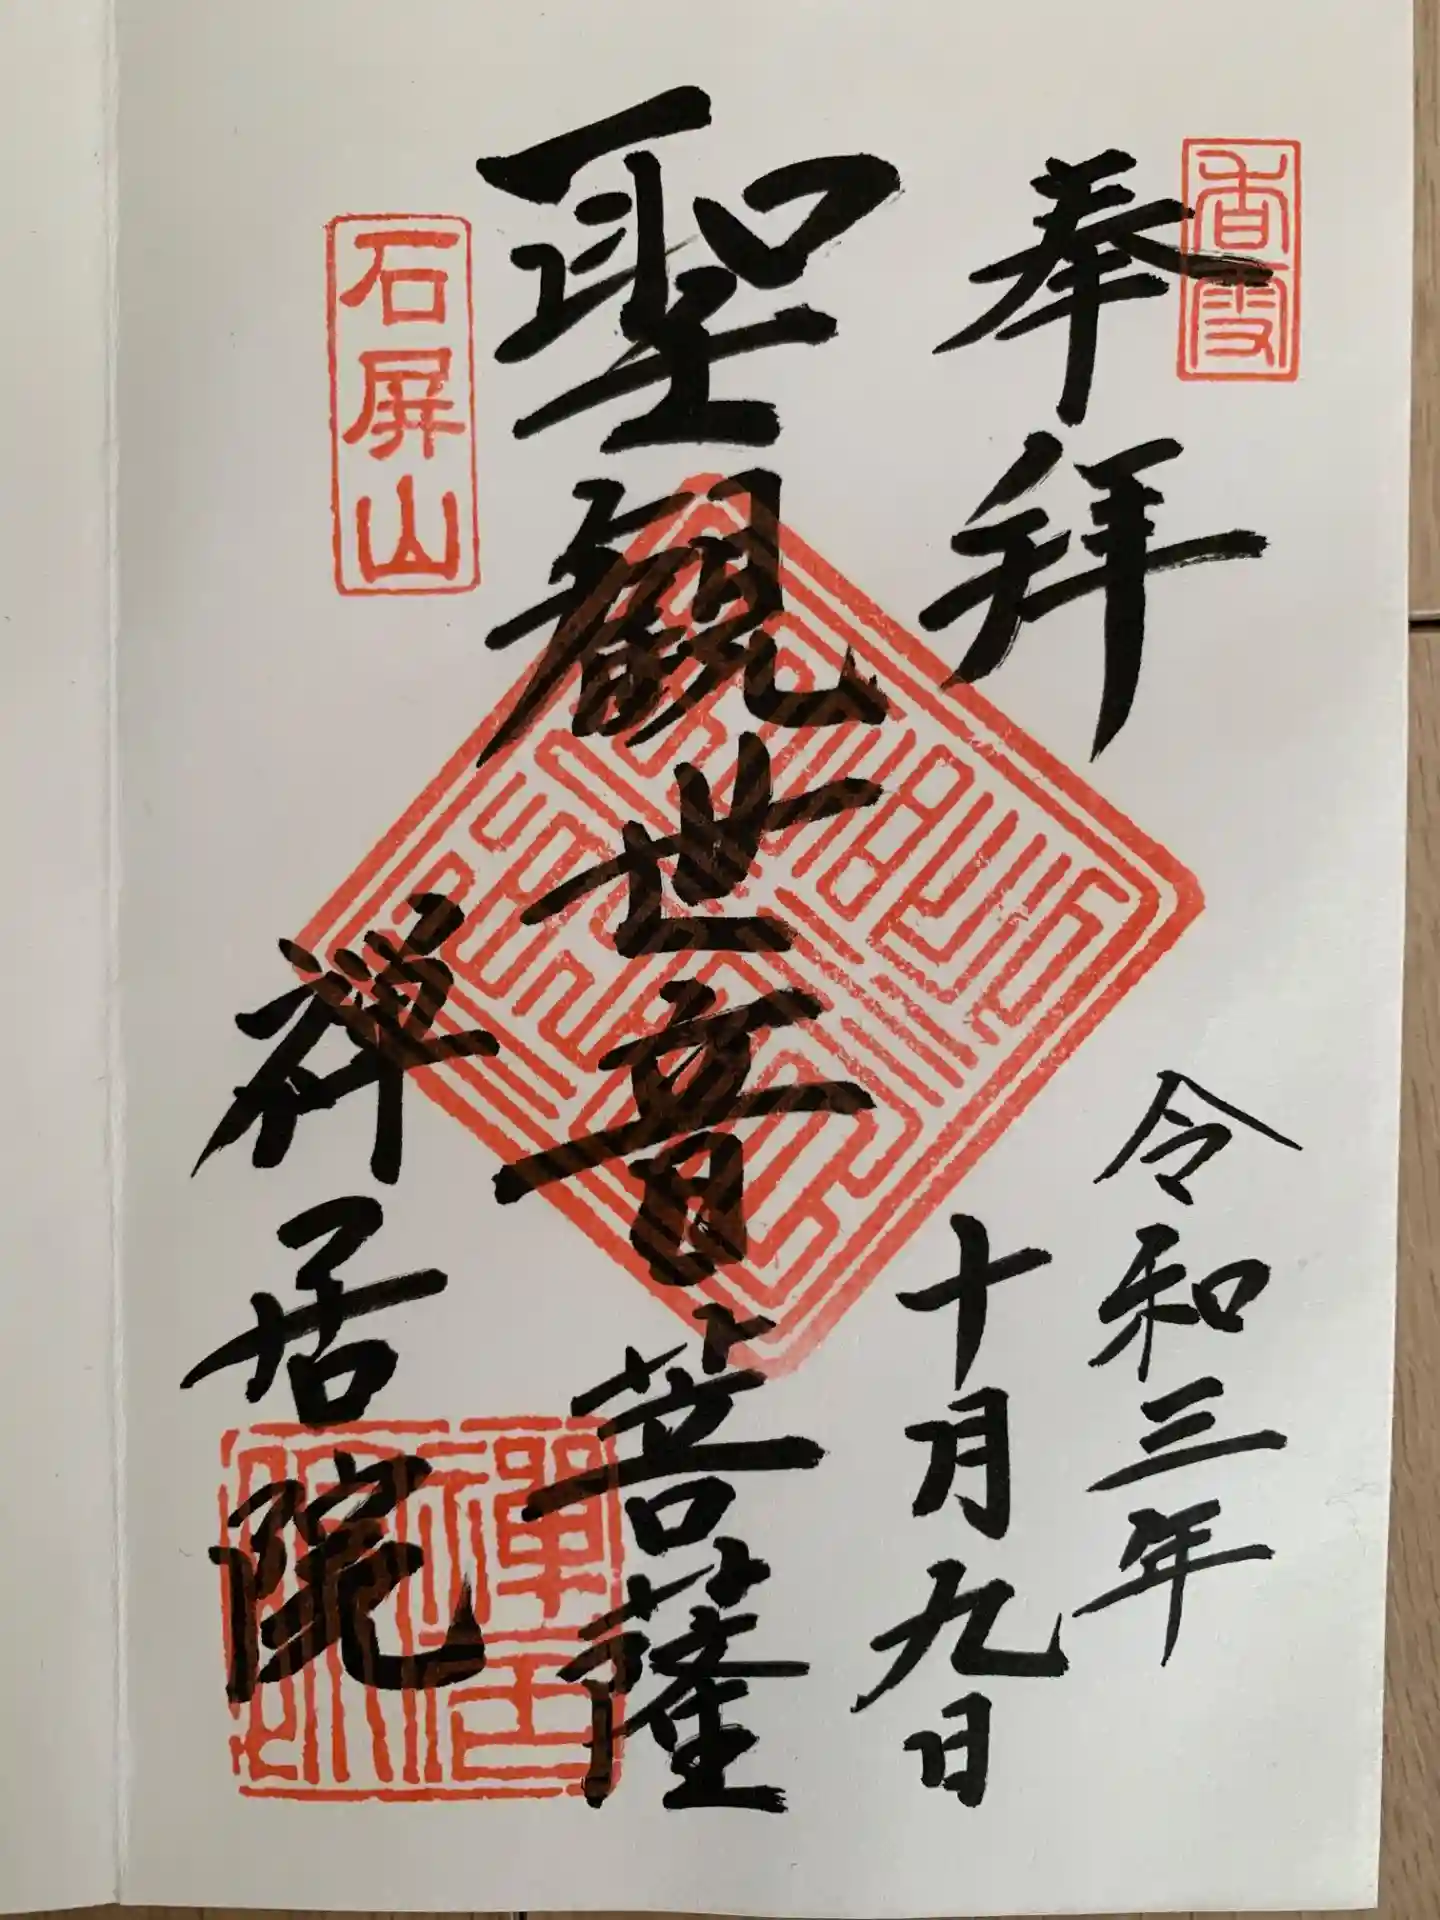 香雪
奉拝
令和三年
十月九日
聖観世音菩薩
石屏山
禅居院